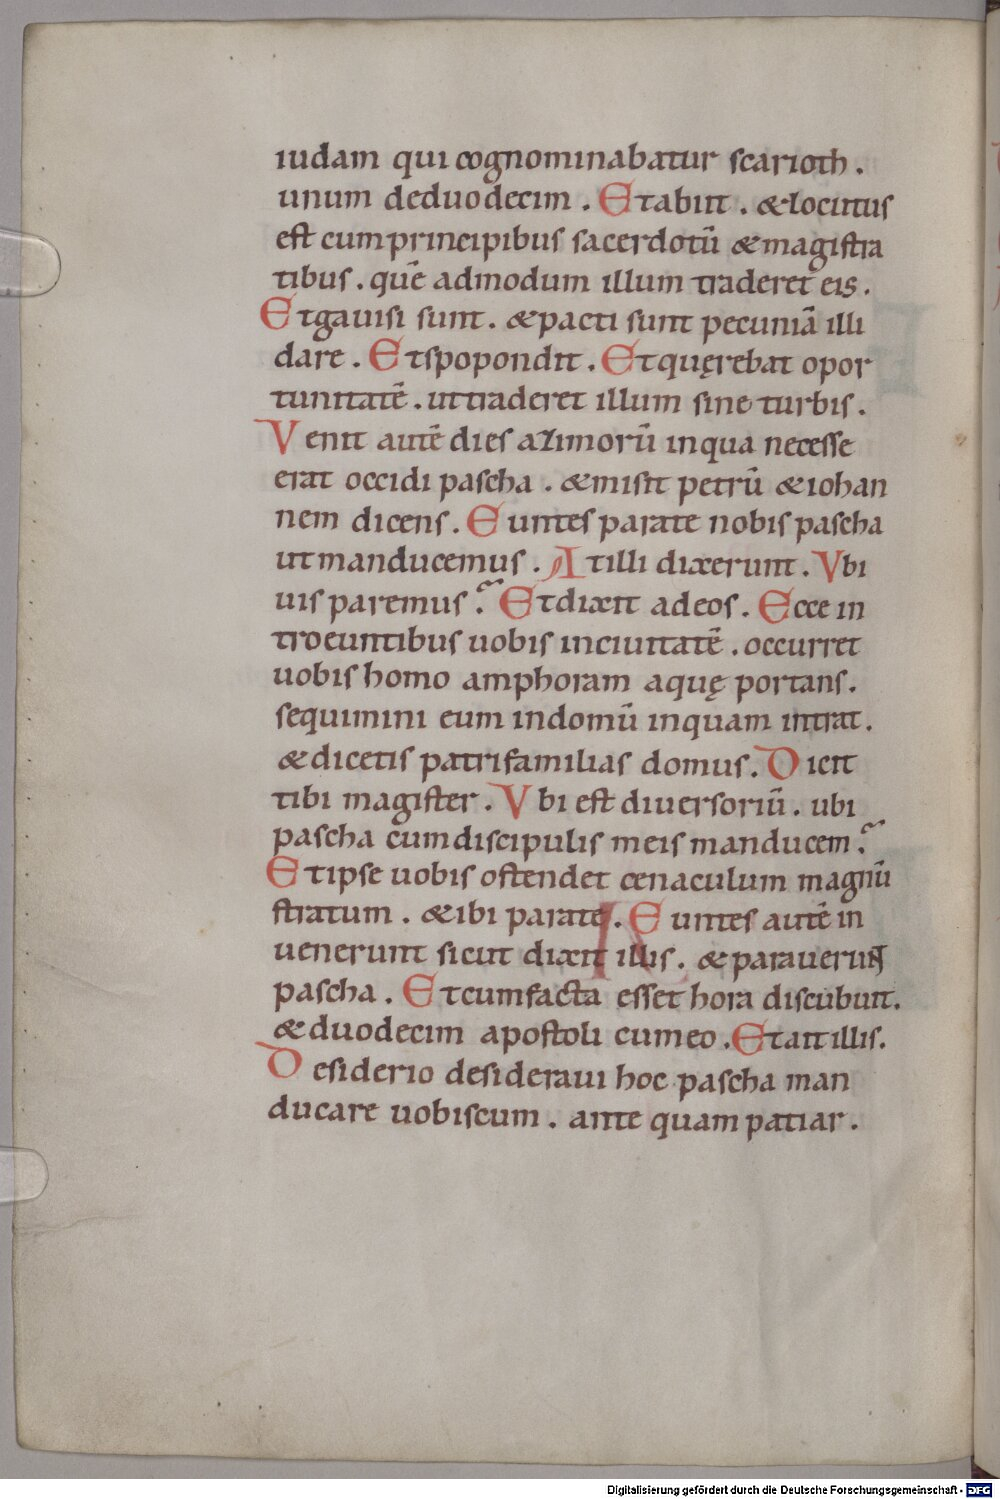 iudam qui cognominabatur scarioth .
unum deduodecim . Etabiit . &locutus
est cumprincipibus sacerdotū &magistra
tibus . quē admodum illum traderet eis .
Etgauisi sunt . &pacti sunt pecuniā illi
dare . Etspopondit . Etquęrebat opor
tunitatē . uttraderet illum sine turbis .
Venit autē dies azimorū inqua necesse
erat occidi pascha . &misit petrū &iohan
nem dicens . Euntes parate nobis pascha
utmanducemus . Atilli dixerunt . Vbi
uis paremus ? Etdixit adeos . Ecce in
troeuntibus uobis inciuitatē . occurret
uobis homo amphoram aquę portans .
sequimini eum indomū inquam intrat .
&dicetis patrifamilias domus . Dicit
tibi magister . Vbi est diuersoriū . ubi
pascha cumdiscipulis meis manducem ?
Etipse uobis ostendet cenaculum magnū
stratum . &ibi parate . Euntes autē in
uenerunt sicut dixit illis . &parauerunt
pascha . Etcumfacta esset hora discubuit .
&duodecim apostoli cumeo . Etait illis .
Desiderio desideraui hoc pascha man
ducare uobiscum . ante quam patiar .
Digitalisierung gefördert durch die Deutsche Forschungsgemeinschaft - DFG